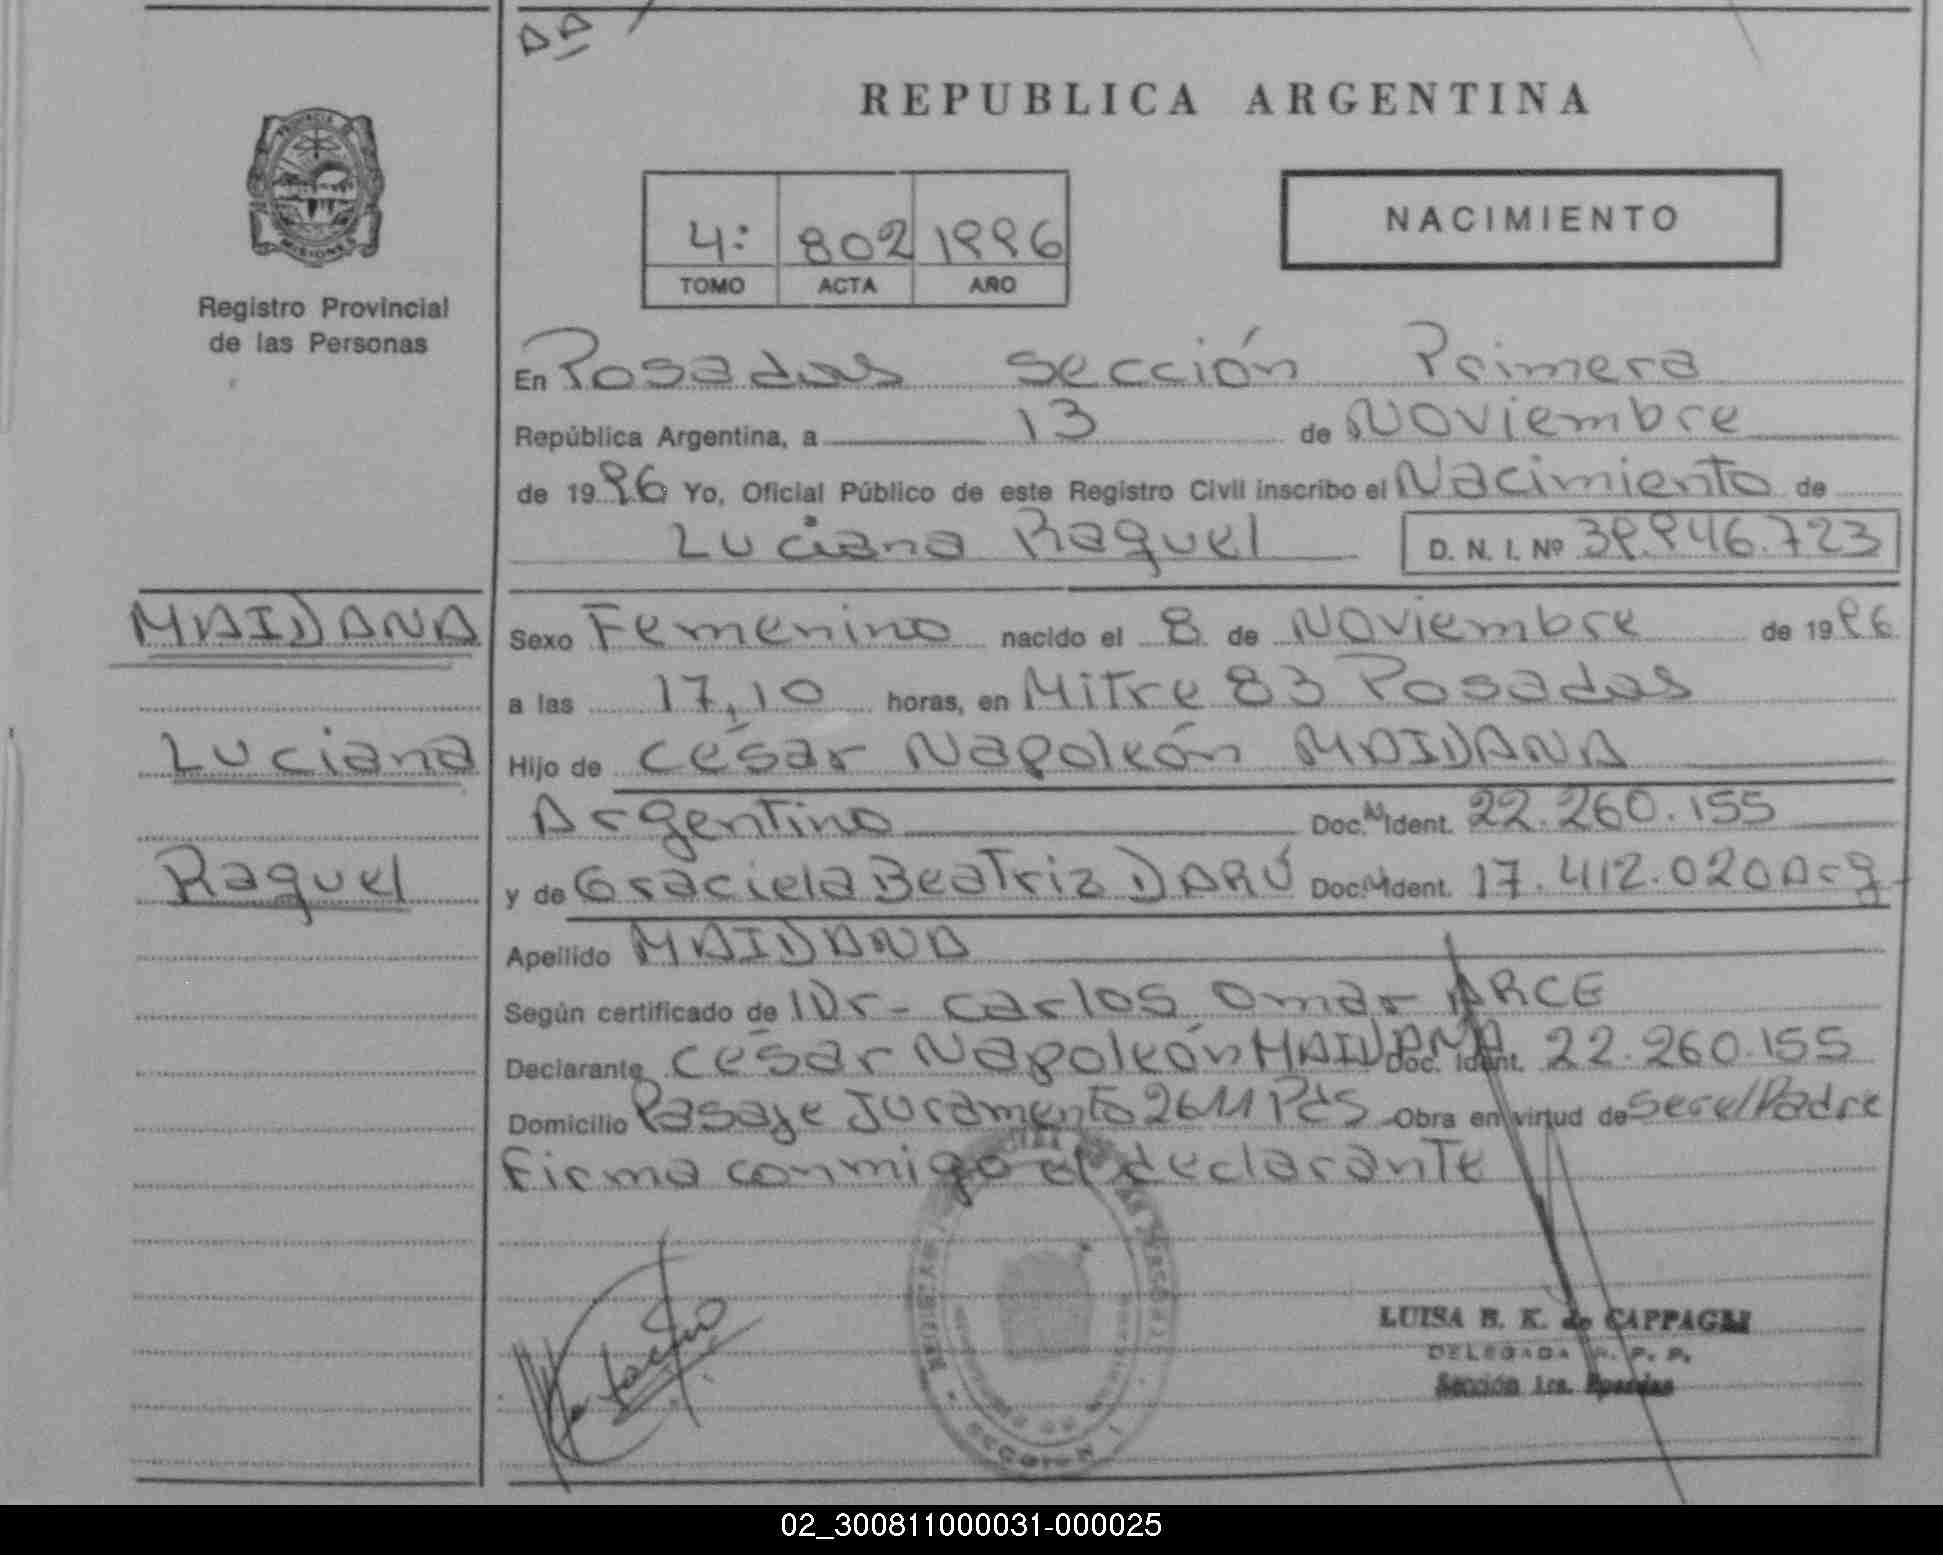 REPUBLICA ARGENTINA
PROVINCIA DE
MISIONES
Registro Provincial
de las Personas
4: 802 1996
TOMO ACTA AÑO
NACIMIENTO
En Posadas Sección Primera
República Argentina, a 13 de Noviembre
de 1996 Yo, Oficial Público de este Registro Civil inscribo el Nacimiento de
Luciana Raquel D. N. I. Nº 39.946.723
MAIDANA
Luciana
Raquel
Sexo Femenino nacido el 8 de Noviembre de 1996
a las 17,10 horas, en Mitre 83 Posadas
Hijo de César Napoleón MAIDANA
Argentino Doc. N Ident. 22.260.155
y de Graciela Beatriz DARÚ Doc. Ident. 17.412.020 Arg
Apellido MAIDANA
Según certificado de Dr- Carlos Omar ARCE
Declarante César Napoleón MAIDANA Doc. Ident. 22.260.155
Domicilio Pasaje Juramento 2611 Pdas Obra en virtud de ser el Padre
Firma conmigo el declarante
LUISA B. K. de CAPPAGLI
DELEGADA R. P. P.
Sección 1ra. Posadas
02_300811000031-000025